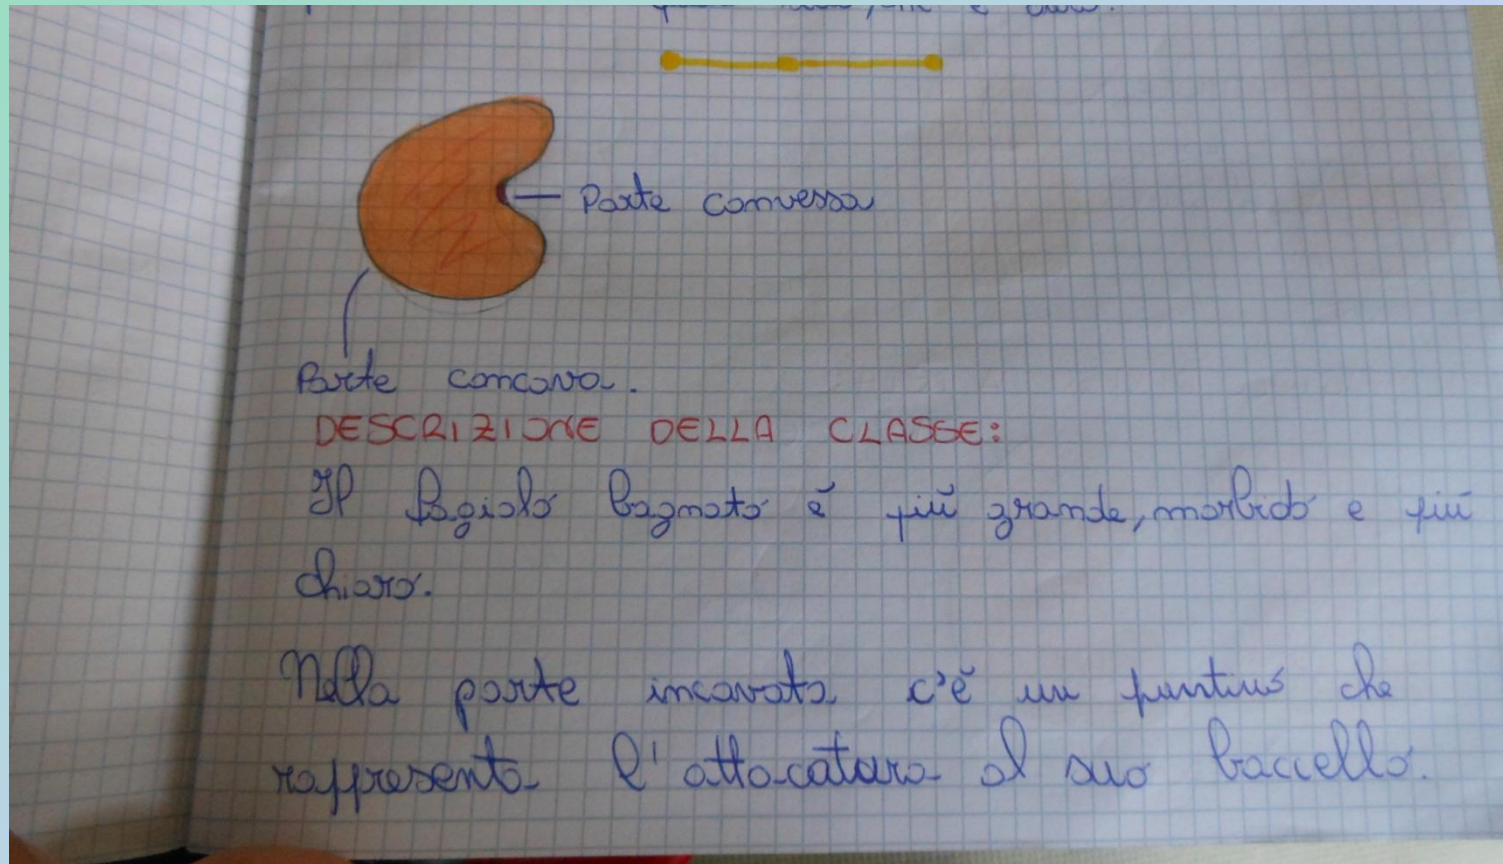 Parte convessa
Parte concava.
DESCRIZIONE DELLA CLASSE:
Il fagiolo bagnato è più grande, morbido e più
chiaro.
Nella parte incavata c'è un puntino che
rappresenta l'attaccatura al suo baccello.